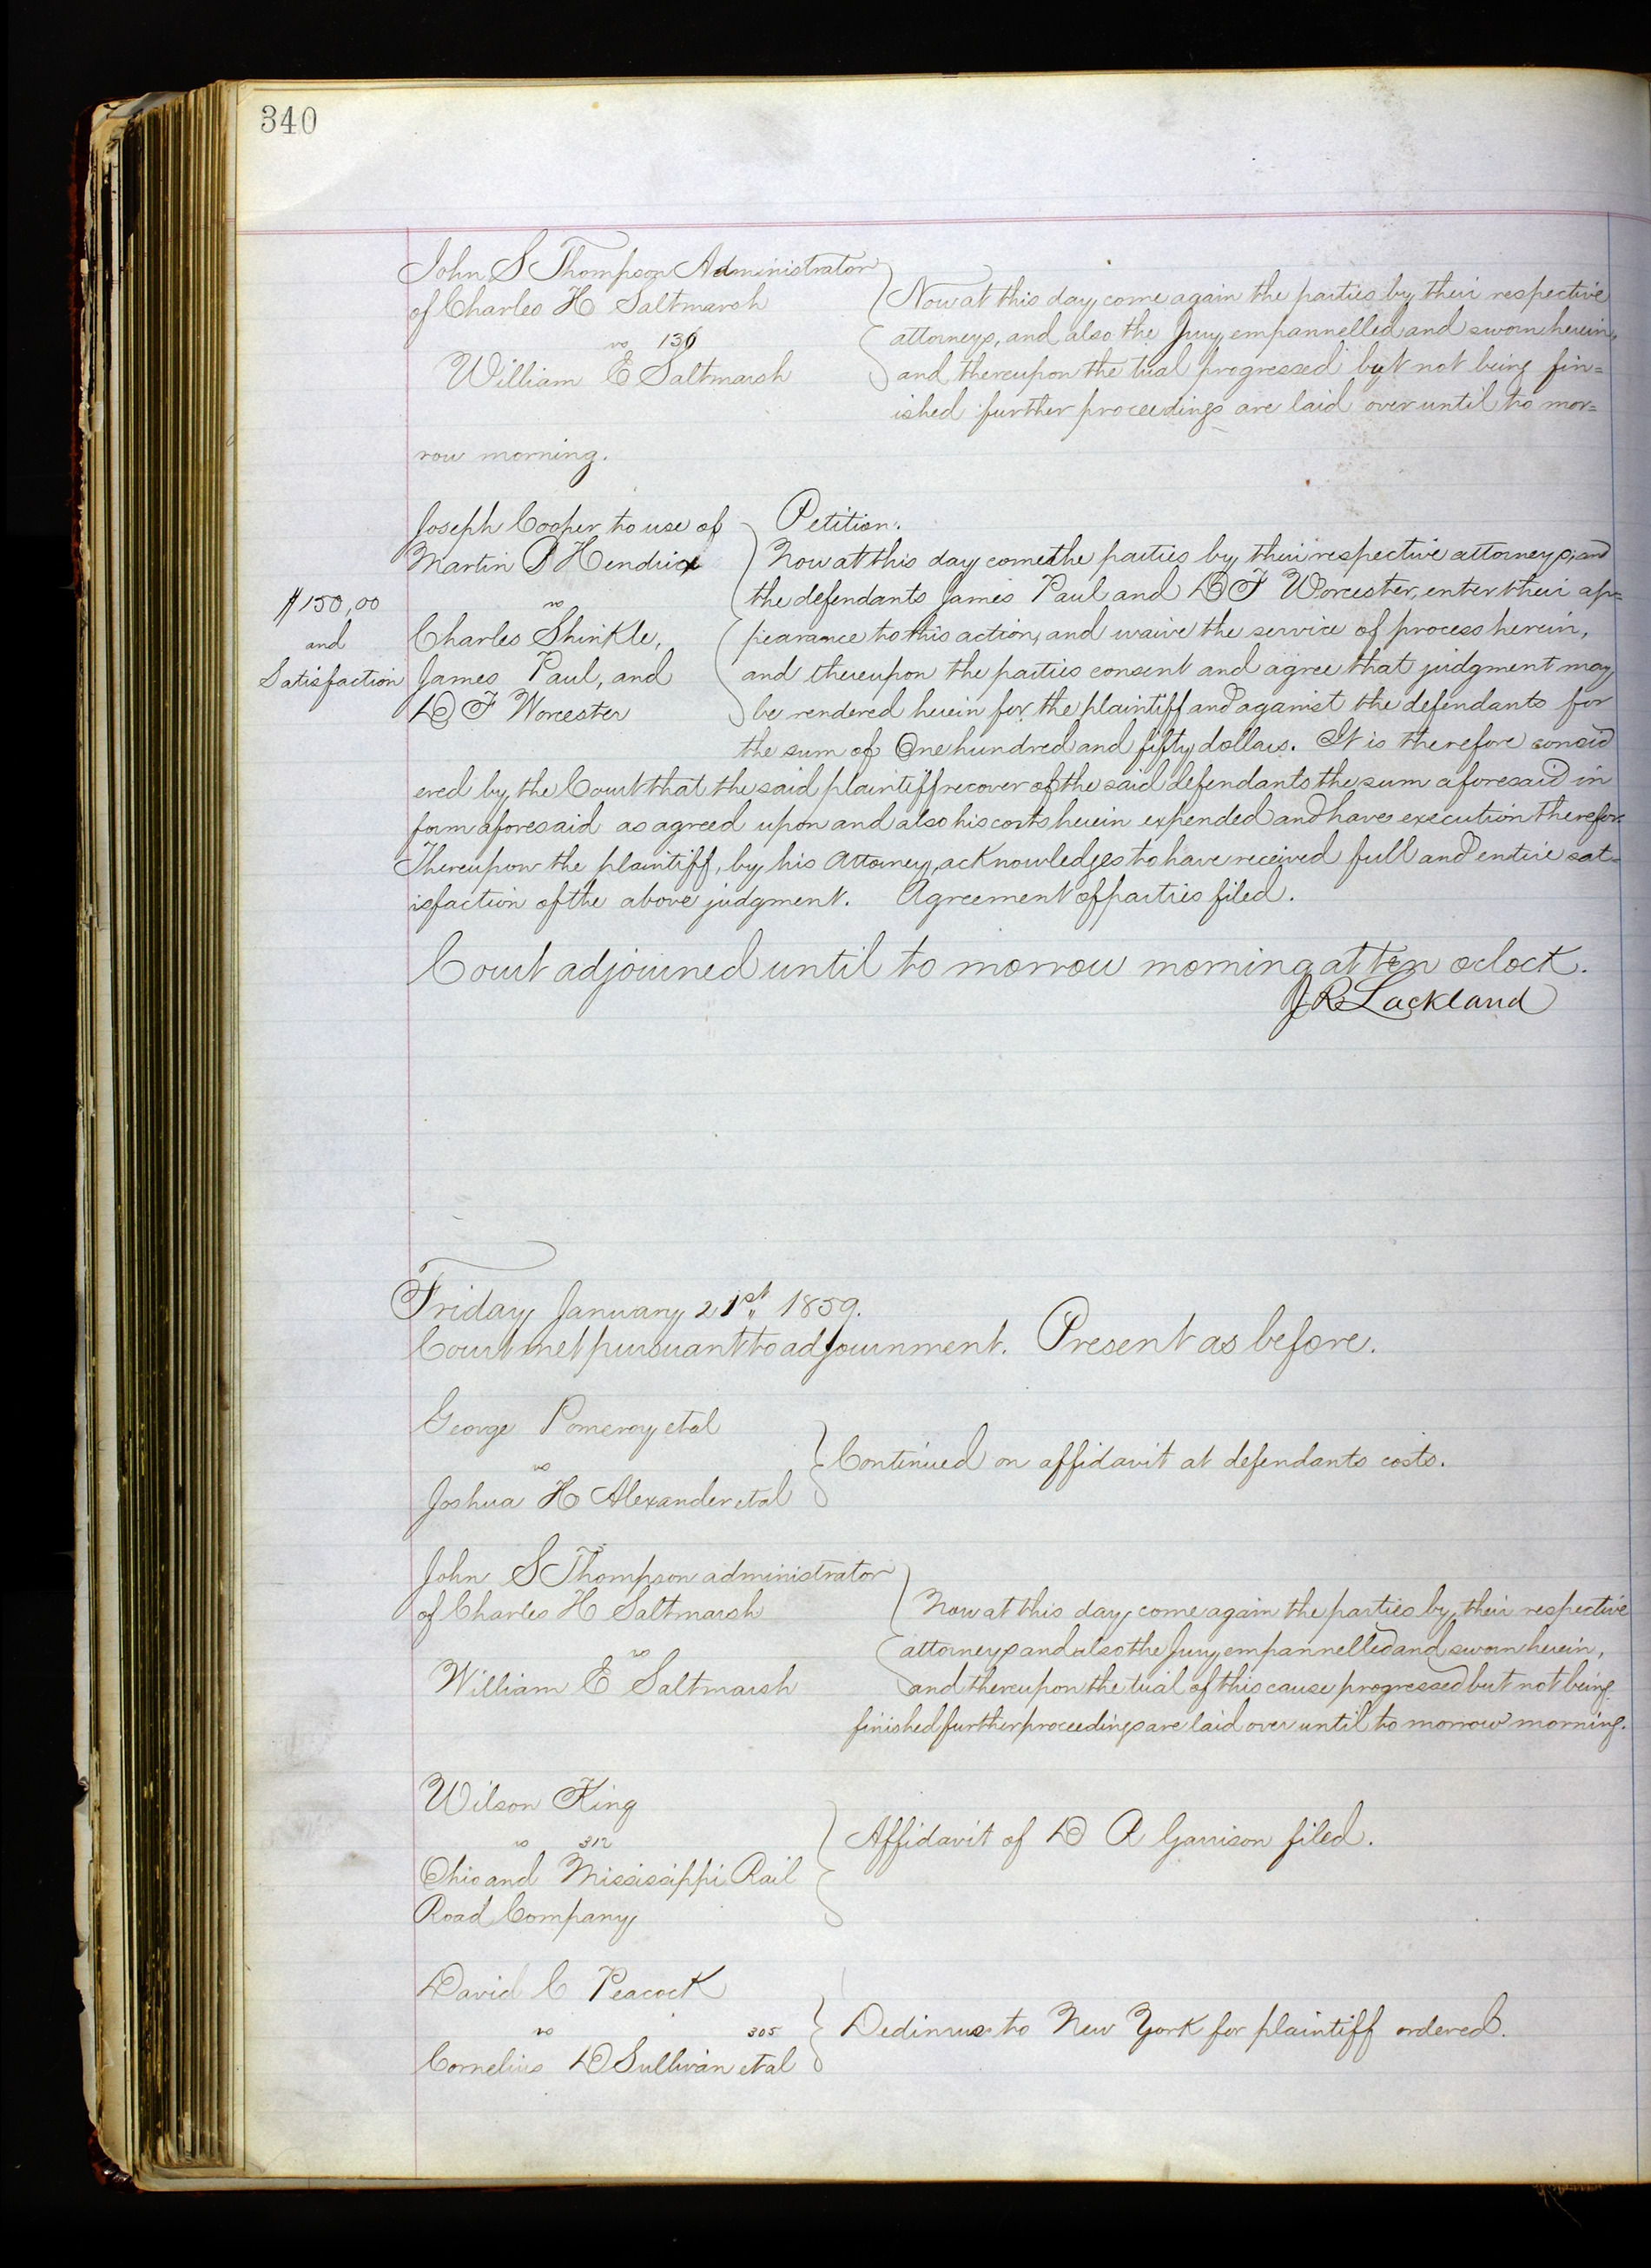 340
John S Thompson Administrator
of Charles H Saltmarsh
vs 136
William E Saltmarsh
Now at this day come again the parties by their respective
attorneys, and also the Jury empannelled and sworn herein,
and thereupon the trial progressed but not being fin=
ished further proceedings are laid over until to mor=
row morning.
Joseph Cooper to use of
Martin P Hendrix
vs
Charles Shinkle,
James Paul, and
D F Worcester
$150,00
and
Satisfaction
Petition.
Now at this day come the parties by their respective attorneys, and
the defendants James Paul and D F Worcester, enter their ap=
pearance to this action, and waive the service of process herein,
and thereupon the parties consent and agree that judgment may
be rendered herein for the plaintiff and against the defendants for
the sum of One hundred and fifty dollars. It is therefore consid
ered by the Court that the said plaintiff recover of the said defendants the sum aforesaid in
form aforesaid as agreed upon and also his costs herein expended and have execution therefor.
Thereupon the plaintiff, by his Attorney, acknowledges to have received full and entire sat=
isfaction of the above judgment. Agreement of parties filed.
Court adjourned until to morrow morning at ten oclock.
J R Lackland
Friday January 21st 1859.
Court met pursuant to adjournment. Present as before.
George Pomeroy etal
vs
Joshua H Alexander etal
Continued on affidavit at defendants costs.
John S Thompson administrator
of Charles H Saltmarsh
vs
William E Saltmarsh
Now at this day, come again the parties by their respective
attorneys and also the Jury empannelled and sworn herein,
and thereupon the trial of this cause progressed but not being
finished further proceedings are laid over until to morrow morning.
Wilson King
vs 312
Ohio and Mississippi Rail
Road Company
Affidavit of D A Garrison filed.
David C Peacock
vs 305
Cornelius D Sullivan etal
Dedimus to New York for plaintiff ordered.